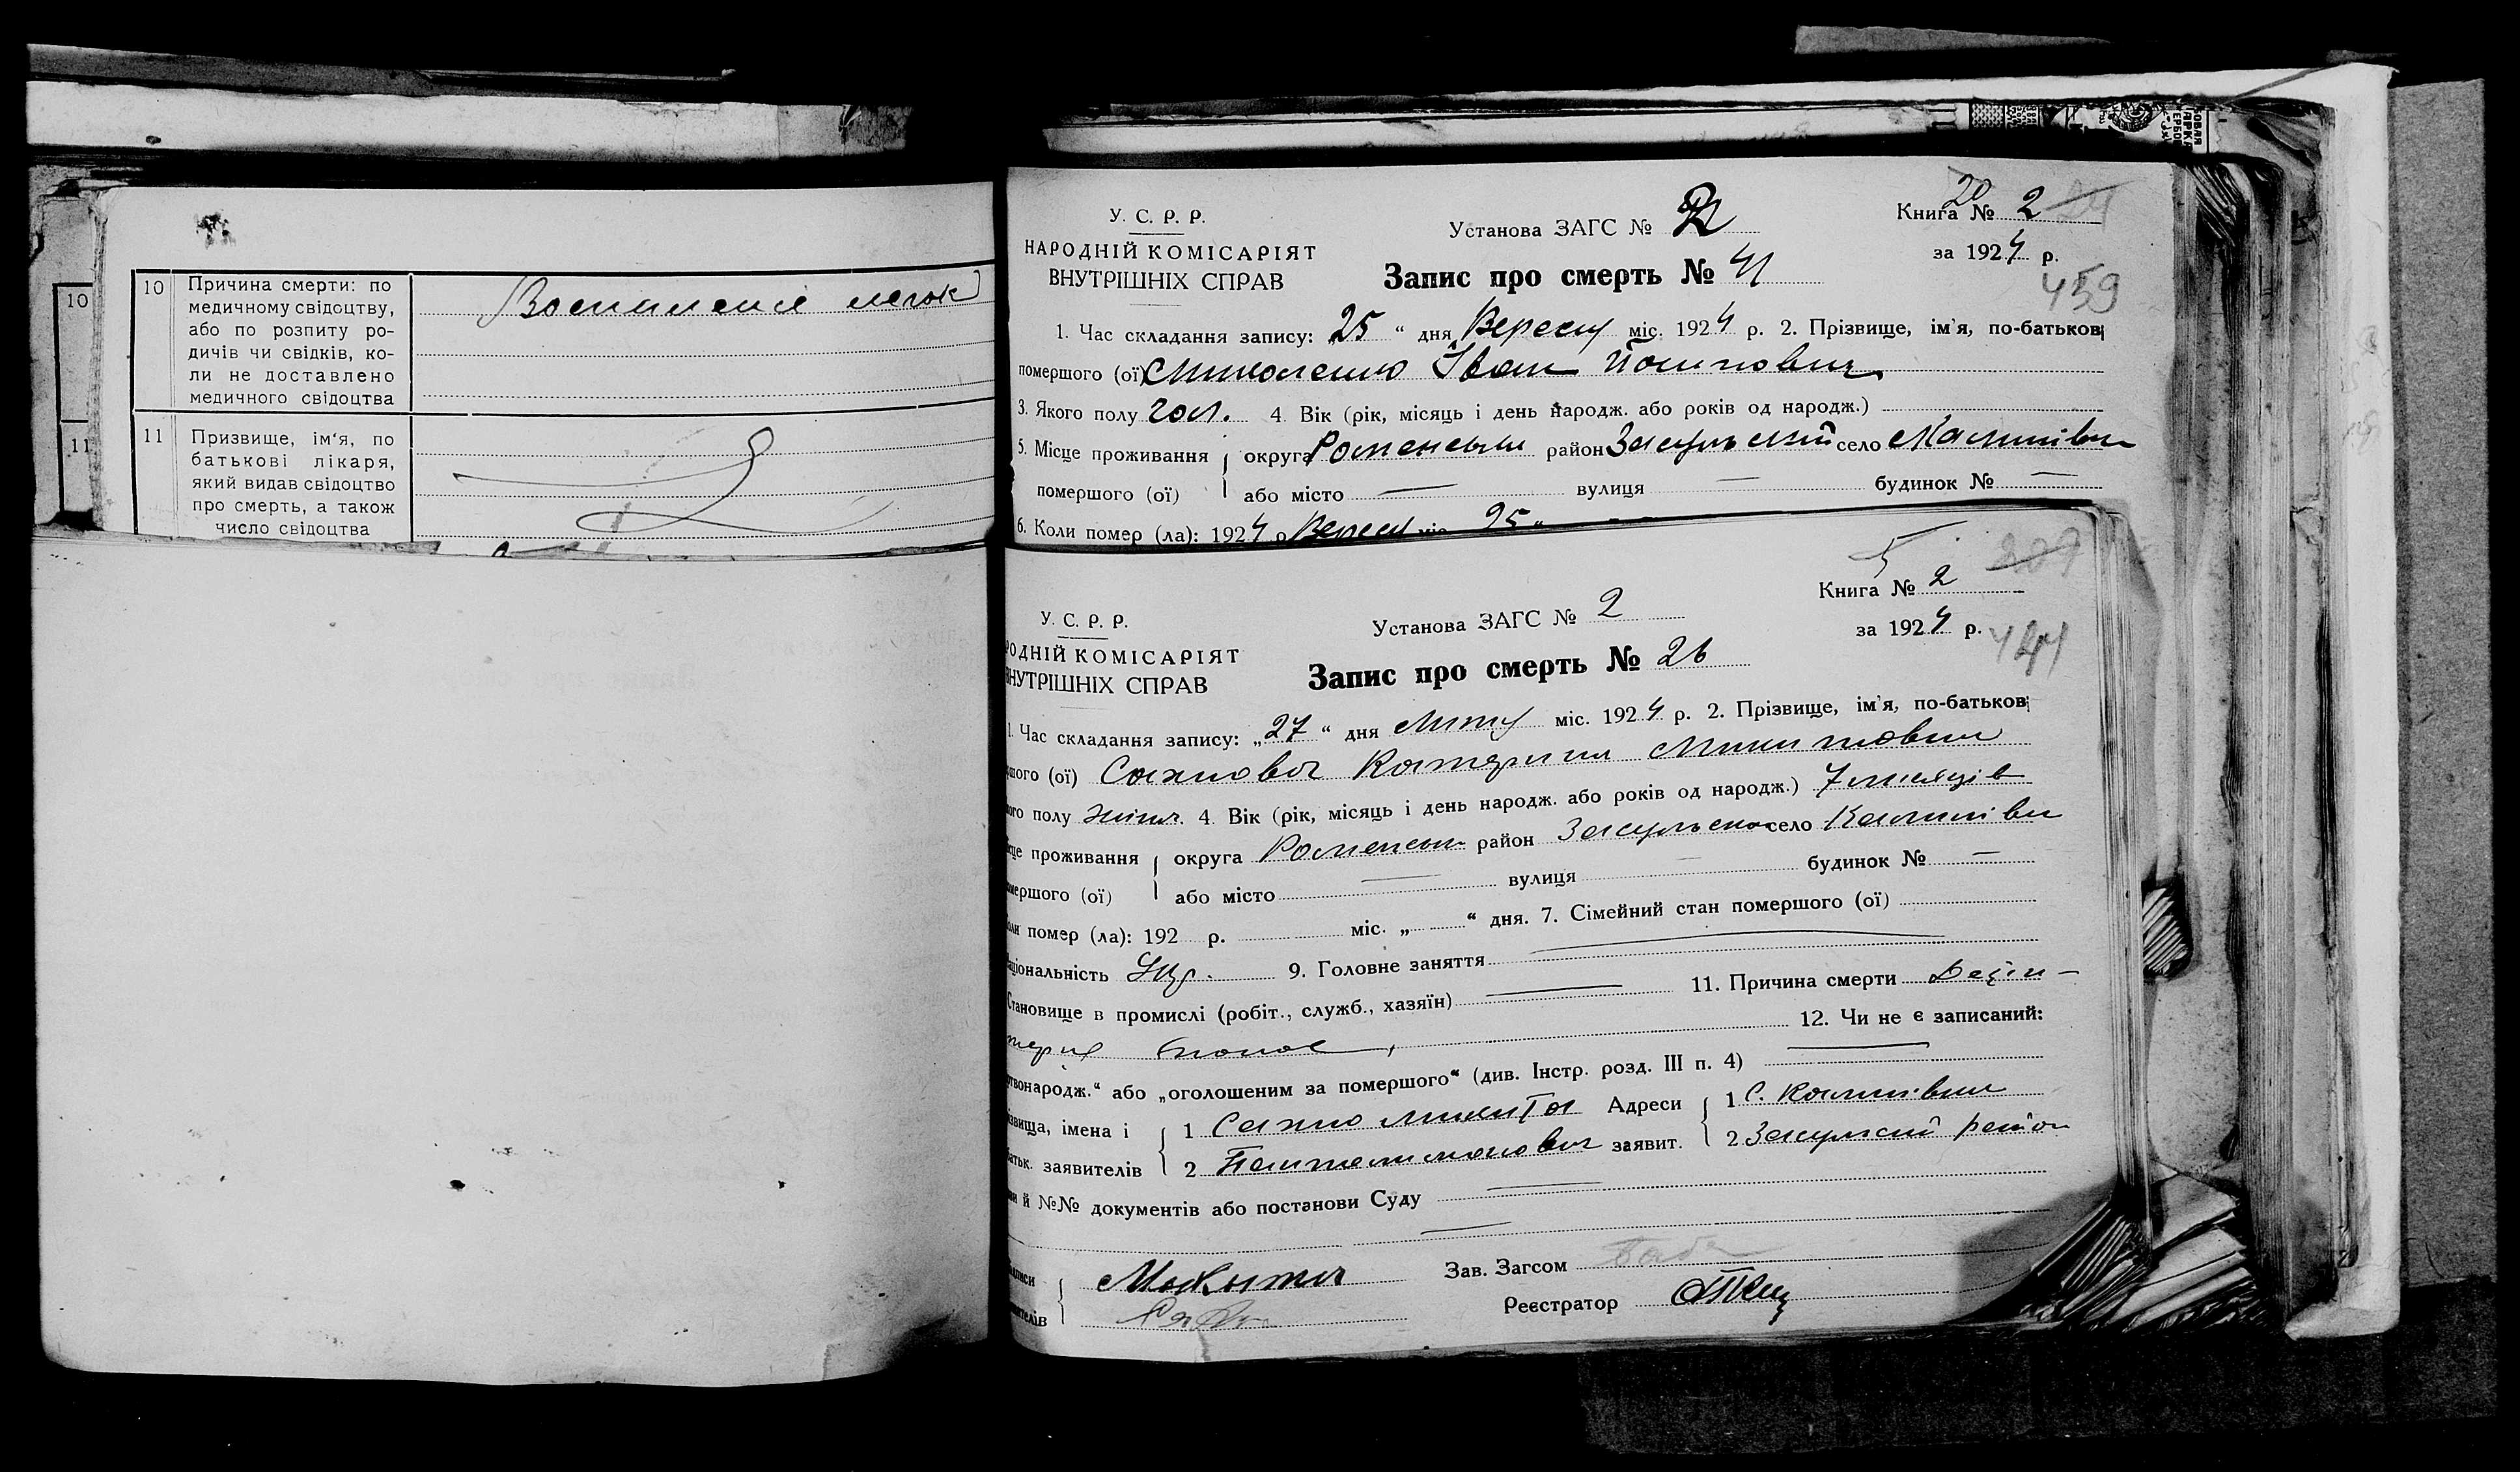 10
11
10 Причина смерти: по
медичному свідоцтву,
або по розпиту ро-
дичів чи свідків, ко-
ли не доставлено
медичного свідоцтва
Воспаление легок
11 Призвище, ім'я, по
батькові лікаря,
який видав свідоцтво
про смерть, а також
число свідоцтва
У. С. Р. Р.
НАРОДНІЙ КОМІСАРІЯТ
ВНУТРІШНІХ СПРАВ
Установа ЗАГС № 2
Запис про смерть № 41
20
Книга № 2
за 1924 р.
459
1. Час складання запису: 25 " дня Вересня міс. 1924 р. 2. Прізвище, ім'я, по-батькові
помершого (ої) Миколенко Іван
3. Якого полу чол. 4. Вік (рік, місяць і день народж. або років од народж.)
5. Місце проживання округа Роменськи район Засульский село Калинівка
помершого (ої) або місто — вулиця — будинок № —
6. Коли помер (ла): 1924 р Вересн міс 25 "
У. С. Р. Р.
РОДНІЙ КОМІСАРІЯТ
ВНУТРІШНІХ СПРАВ
Установа ЗАГС № 2
Запис про смерть № 26
5
Книга № 2
за 1924 р.
1. Час складання запису: „27 “ дня міс. 1924 р. 2. Прізвище, ім'я, по-батькові
шого (ої) Сахнова Катерина Микитовна
ого полу жіноч. 4. Вік (рік, місяць і день народж. або років од народж.) 7 місяців
це проживання округа Роменськи район Засульско село Калинівка
мершого (ої) або місто — вулиця — будинок № —
оли помер (ла): 192 р. міс. „ “ дня. 7. Сімейний стан помершого (ої)
аціональність Укр. 9. Головне заняття
Становище в промислі (робіт., служб., хазяїн) — 11. Причина смерти
12. Чи не є записаний:
ртвонародж.“ або „оголошеним за помершого“ (див. Інстр. розд. III п. 4) —
ізвища, імена і 1 Сахно Микита Адреси 1 С. Калинівка
батьк. заявителів 2 Пантелимонович заявит. 2 Засульский район
ви й №№ документів або постанови Суду —
Микита
Зав. Загсом
Реєстратор